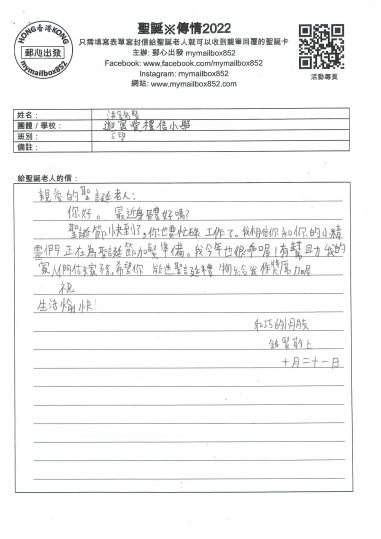 HONG 香港 KONG
郵心出發
mymailbox852
聖誕※傳情2022
只需填寫表單寫封信給聖誕老人就可以收到親筆回覆的聖誕卡
主辦: 郵心出發 mymailbox852
Facebook: www.facebook.com/mymailbox852
Instagram: mymailbox852
網站: www.mymailbox852.com
活動專頁
姓名:
團體 / 學校: 迦密愛禮信小學
班別:
備註:
給聖誕老人的信:
親愛的聖誕老人:
你好。最近身體好嗎?
聖誕節快到了,你也要忙碌工作了。我相信你和你的小精
靈們正在為聖誕節加緊準備。我今年也很乖喔!有幫助我的
家人們做家務,希望你能送聖誕禮物給我作獎勵呢
祝
生活愉快!
乖巧的小朋友
敬上
十月二十一日